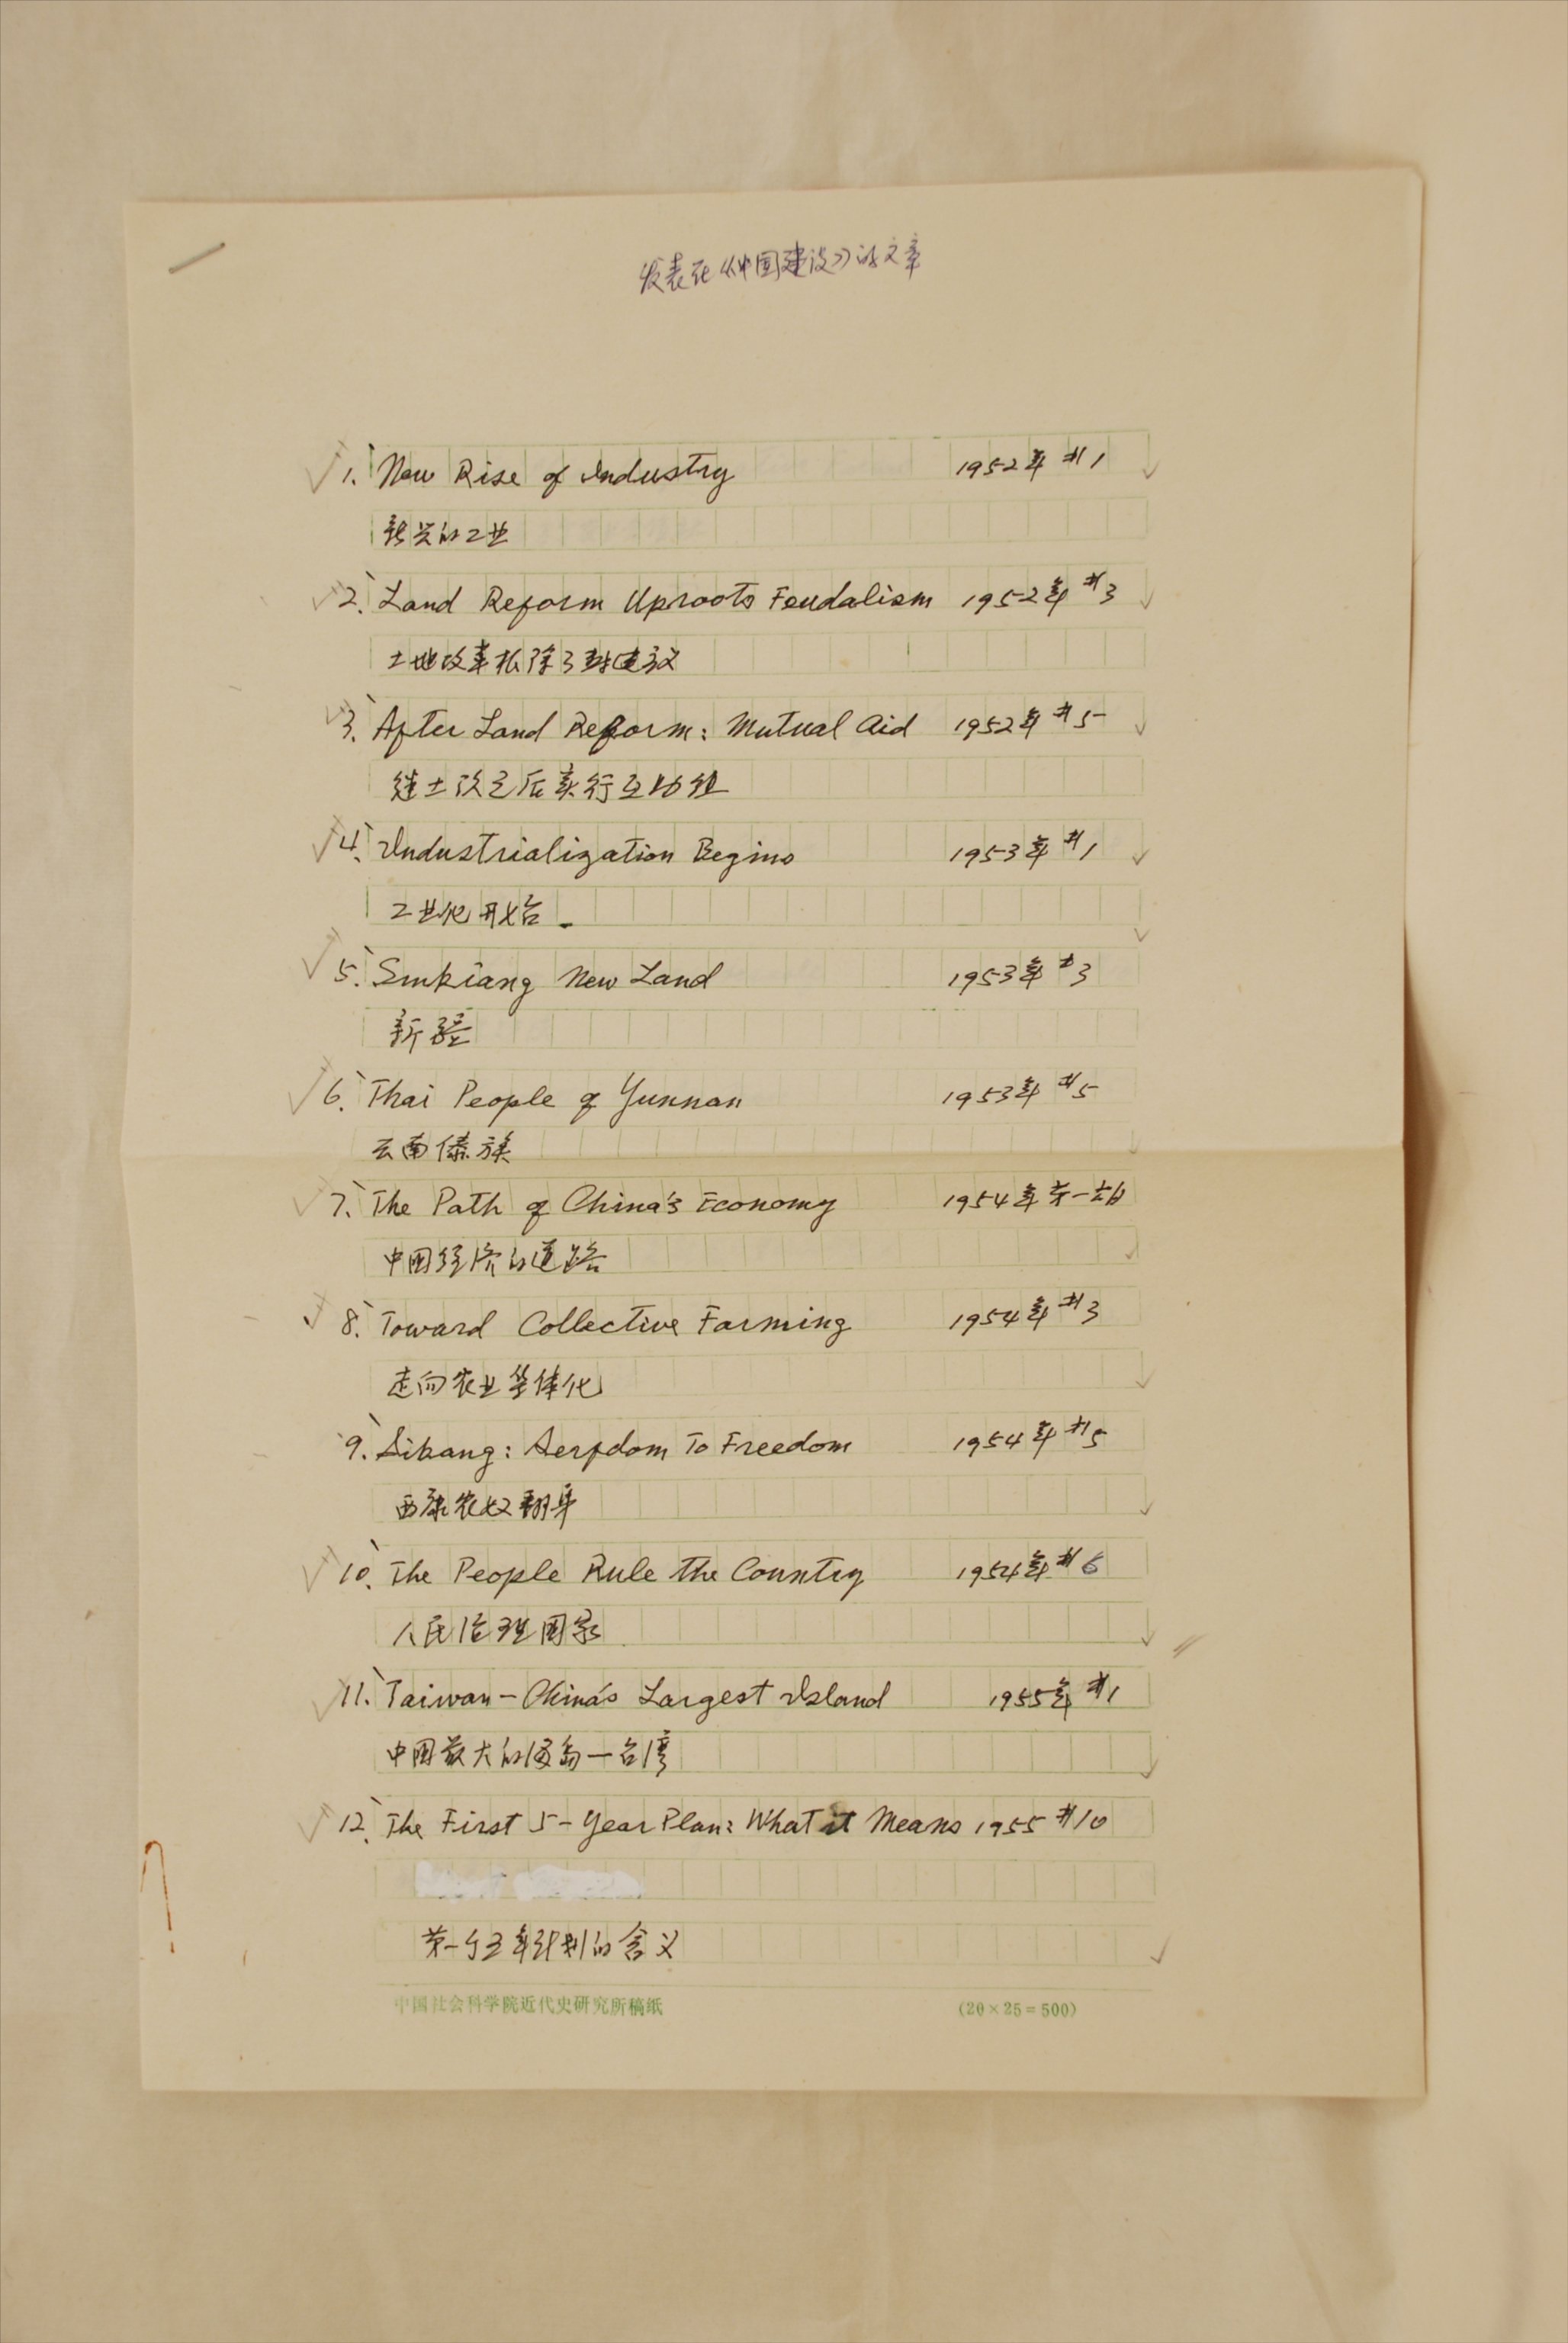 发表在《中国建设》的文章
1. New Rise of Industry 1952年 #1
新兴的工业
2. Land Reform Uproots Feudalism 1952年 #3
土地改革拔除了封建主义
3. After Land Reform: Mutual Aid 1952年 #5
继土改之后实行互助组
4. Industrialization Begins 1953年 #1
工业化开始.
5. Sinkiang New Land 1953年 #3
新疆
6. Thai People of Yunnan 1953年 #5
云南傣族
7. The Path of China's Economy 1954年第一部
中国经济的道路
8. Toward Collective Farming 1954年 #3
走向农业集体化
9. Sikang: Serfdom To Freedom 1954年 #5
西康农奴翻身
10. The People Rule the Country 1954年 #6
人民治理国家
11. Taiwan - China's Largest Island 1955年 #1
中国最大的海岛—台湾
12. The First 5-Year Plan: What it Means 1955 #10
第一个五年计划的含义
中国社会科学院近代史研究所稿纸 (20×25=500)